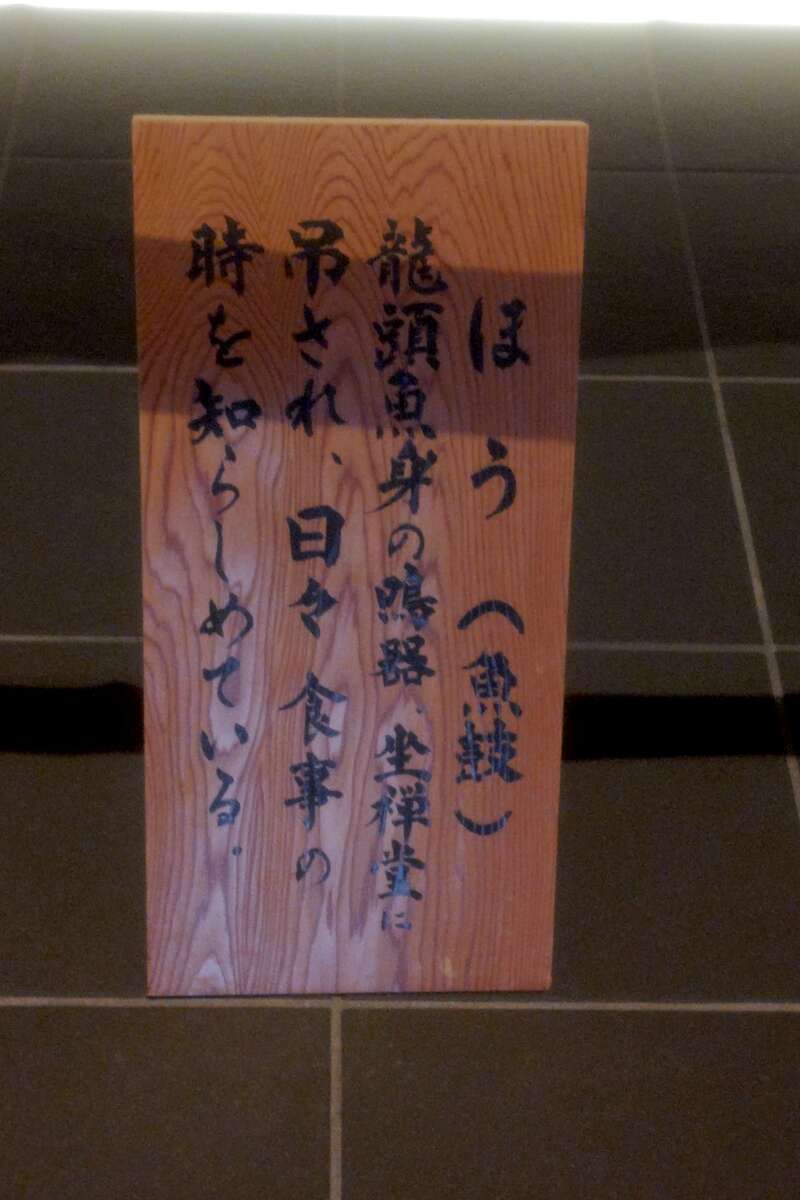 ほう（魚鼓）
龍頭魚身の鳴器、坐禅堂に
吊され、日々食事の
時を知らしめている。